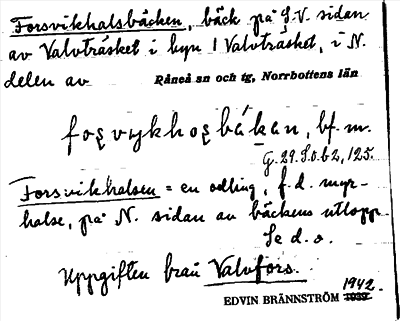 Forsvikhalsbäcken, bäck på S.V. sidan
av Valvträsket i byn 1 Valvträsket, i N.
delen av Råneå sn och tg, Norrbottens län
bf. m.
G. 29. S. o. b 2, 125.
Forsvikhalsen = en odling, f.d. myr-
halse, på N. sidan av bäckens utlopp.
Se d. o.
Uppgiften från Valvfors.
1942.
EDVIN BRÄNNSTRÖM 1939